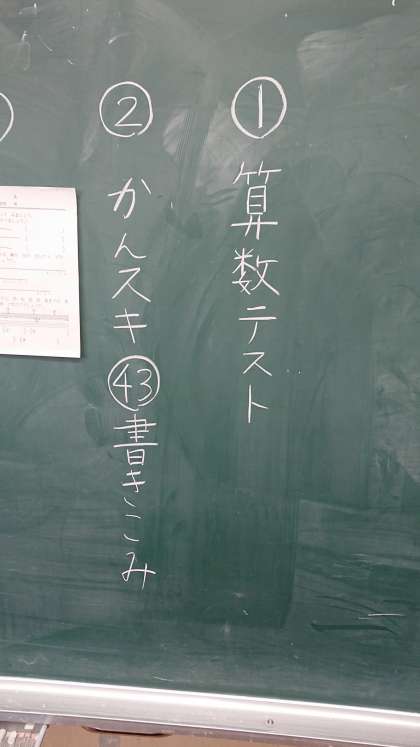 ① 算数テスト
② かんスキ㊸書きこみ